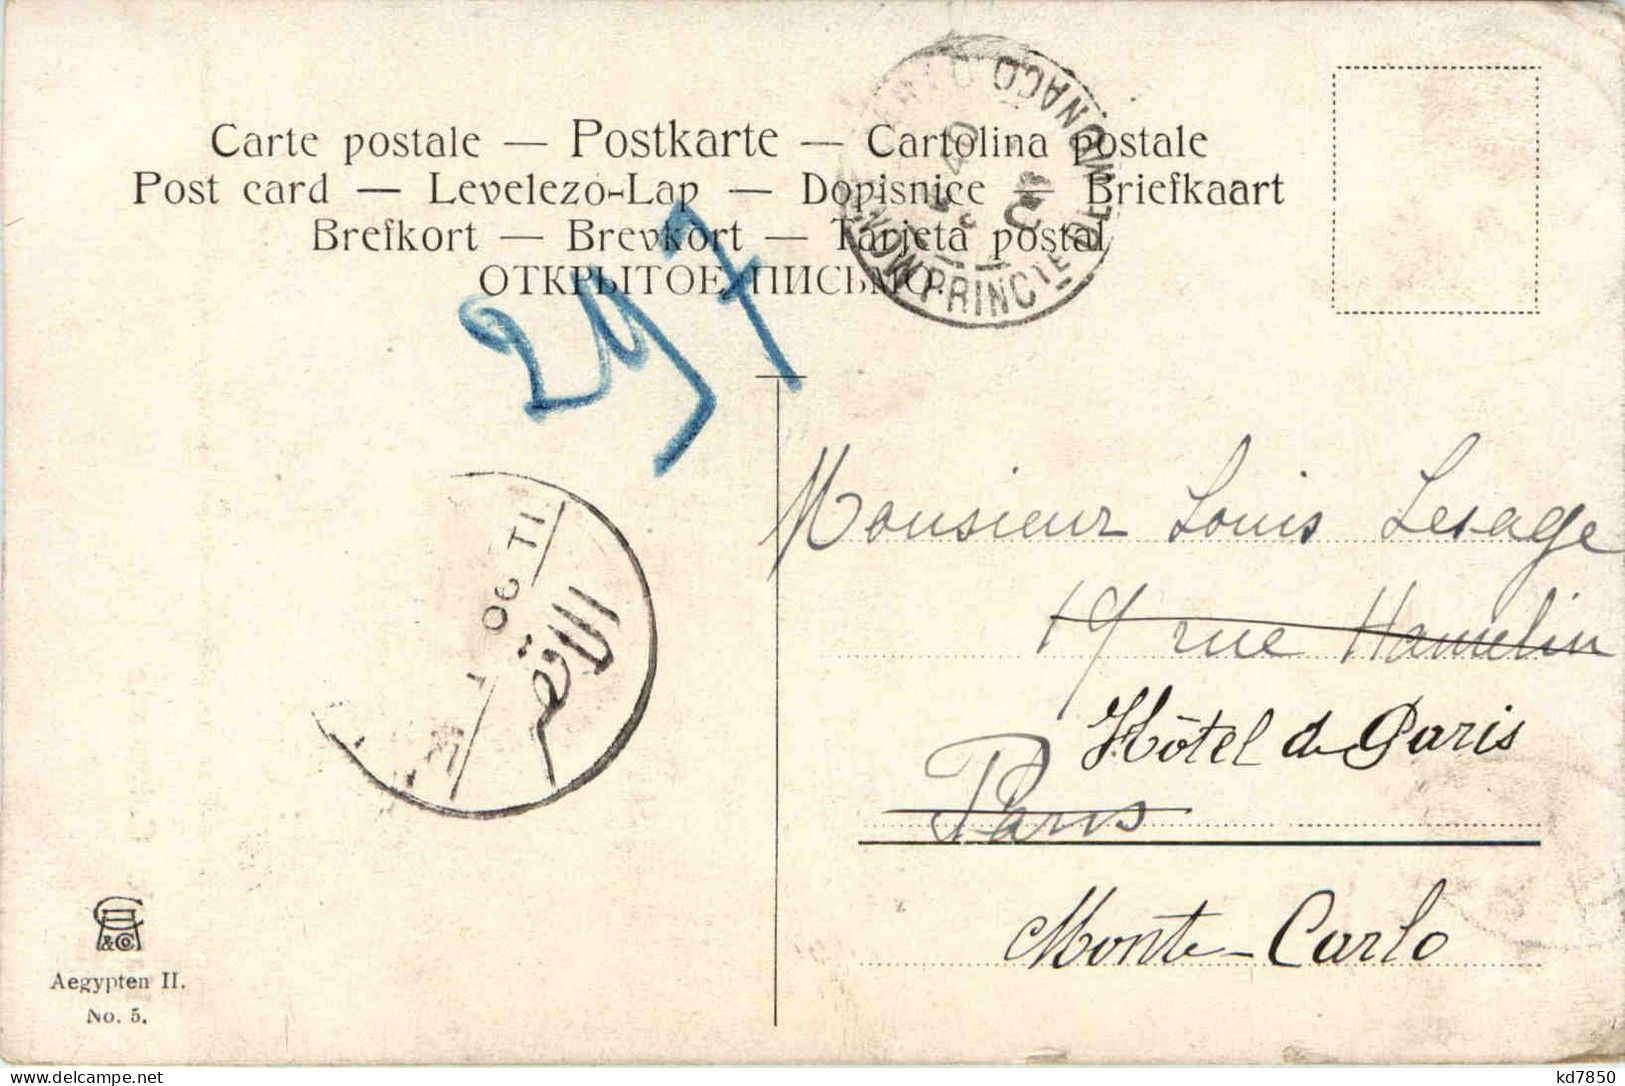 Carte postale — Postkarte — Cartolina postale
Post card — Levelező-Lap — Dopisnice — Briefkaart
Brefkort — Brevkort — Tarjeta postal
ОТКРЫТОЕ ПИСЬМО.
PRINCTE DE MONACO
297
Monsieur Louis Lesage
19 rue Hamelin
Hôtel de Paris
Paris
Monte-Carlo
06 TI
&Co
Aegypten II.
No. 5.
kd7850